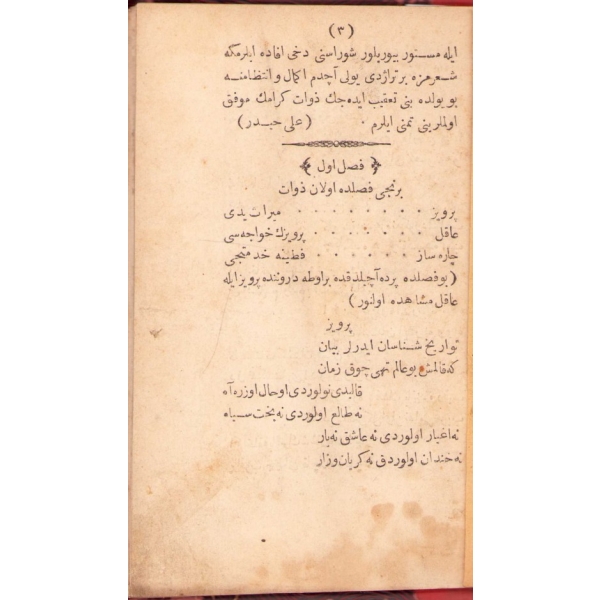 (٣)
ايله مستور بيوريلور شوراسنى دخى افاده ايلرمكه
شعرمزه بر تراژدى يولى آچدم اكمال و انتظامنه
بو يولده بنى تعقيب ايده‌جك ذوات كرامك موفق
اولملرينى تمنى ايلرم . (على حيدر)
فصل اول
برنجى فصلده اولان ذوات
پرويز . . . . . . . . ميراث يدى
عاقل . . . . . . پرويزك خواجه‌سى
چاره ساز . . . . . فطينه خدمتجى
(بو فصلده پرده آچيلدقده بر اوطه دروننده پرويز ايله
عاقل مشاهده اولنور)
پرويز
تواريخ شناسان ايدرلر بيان
كه قالمش بو عالم تهى چوق زمان
قالیدى نولوردى او حال اوزره آه
نه طالع اولوردى نه بخت سياه
نه اغيار اولوردى نه عاشق نه يار
نه خندان اولوردق نه كريان و زار